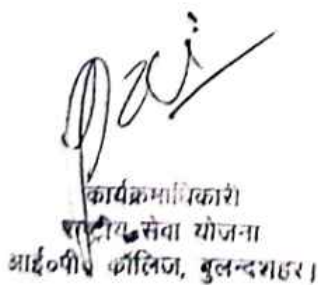 कार्यक्रमाधिकारी
राष्ट्रीय सेवा योजना
आई०पी० कॉलिज, बुलन्दशहर।